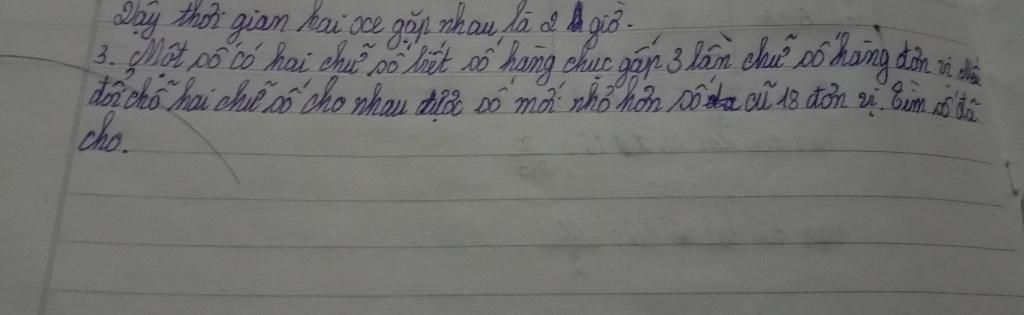 Vậy thời gian hai xe gặp nhau là 2 giờ.
3. Một số có hai chữ số biết số hàng chục gấp 3 lần chữ số hàng đơn vị Nếu
đổi chỗ hai chữ số cho nhau được số mới nhỏ hơn số cũ 18 đơn vị. Tìm số đã
cho.